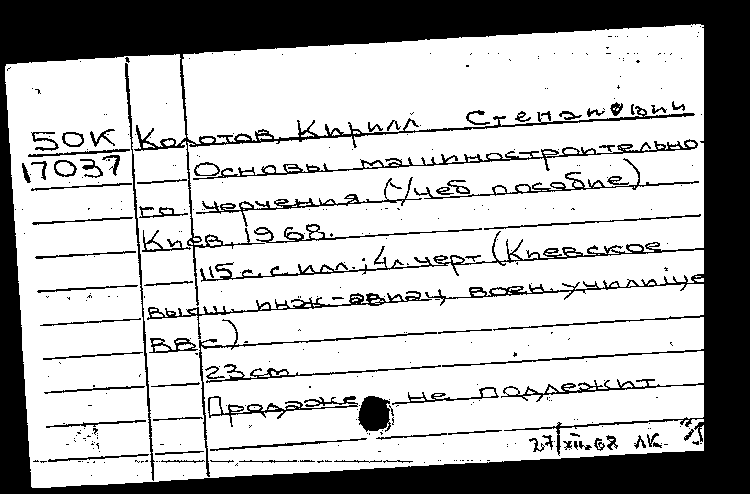 50К Колотов, Кирилл Степанович
17037 Основы машиностроительно-
го черчения. (Учеб пособие).
Киев, 1968.
115 с. с илл.; 4 л. черт (Киевское
высш. инж-авиац воен. училище
ВВС).
23 см.
Продаже не подлежит
27/XII.68 ЛК